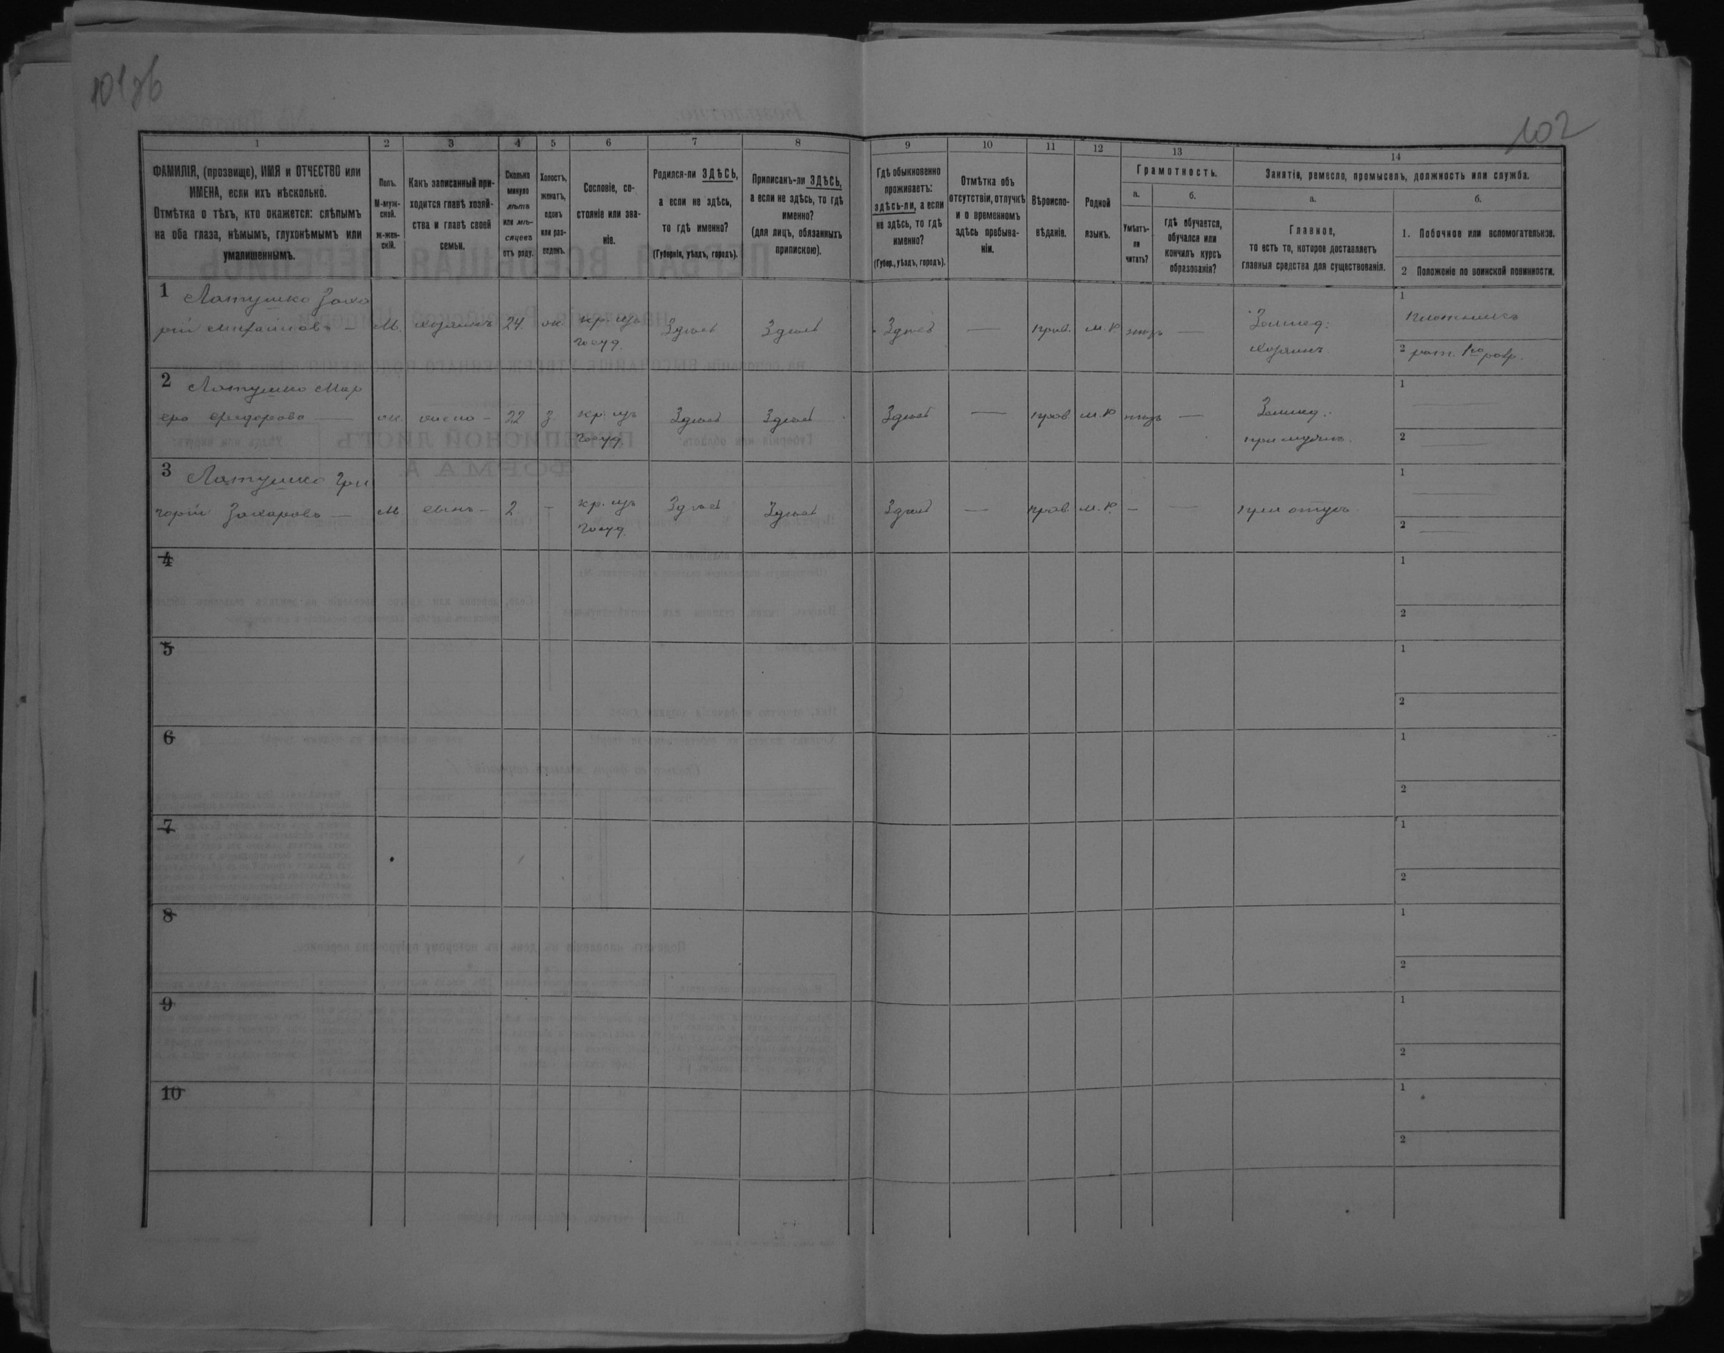 102
1 2 3 4 5 6 7 8 9 10 11 12 13 14
ФАМИЛІЯ, (прозвище), ИМЯ и ОТЧЕСТВО или
ИМЕНА, если ихъ нѣсколько.
Отмѣтка о тѣхъ, кто окажется: слѣпымъ
на оба глаза, нѣмымъ, глухонѣмымъ или
умалишеннымъ.
Полъ.
М-муж-
ской.
Ж-жен-
скій.
Какъ записанный при-
ходится главѣ хозяй-
ства и главѣ своей
семьи.
Сколько
минуло
лѣтъ
или мѣ-
сяцевъ
отъ роду.
Холостъ,
женатъ,
вдовъ
или раз-
веденъ.
Сословіе, со-
стояніе или зва-
ніе.
Родился-ли ЗДѢСЬ,
а если не здѣсь,
то гдѣ именно?
(Губернія, уѣздъ, городъ).
Приписанъ-ли ЗДѢСЬ,
а если не здѣсь, то гдѣ
именно?
(для лицъ, обязанныхъ
припискою).
Гдѣ обыкновенно
проживаетъ:
здѣсь-ли, а если
не здѣсь, то гдѣ
именно?
(Губер., уѣздъ, городъ).
Отмѣтка объ
отсутствіи, отлучкѣ
и о временномъ
здѣсь пребыва-
ніи.
Вѣроиспо-
вѣданіе.
Родной
языкъ.
Грамотность.
а.
Умѣетъ-
ли
читать?
б.
гдѣ обучается,
обучался или
кончилъ курсъ
образованія?
Занятіе, ремесло, промыселъ, должность или служба.
а.
Главное,
то есть то, которое доставляетъ
главныя средства для существованія.
б.
1. Побочное или вспомогательное.
2 Положеніе по воинской повинности.
1 Латушко Заха
рій М. хозяинъ 24 ж. кр. изъ Здѣсь Здѣсь Здѣсь — прав. м.р. — Землед. 1
госуд. хозяинъ 2
2 Латушко Мар
Федорова — ж. жена - 22 з кр. изъ Здѣсь Здѣсь Здѣсь — прав м.р — Землед. 1
госуд. при мужѣ. 2
3 Латушко Гри
горій Захаровъ — М сынъ - 2 - кр. изъ Здѣсь Здѣсь Здѣсь — прав м.р. - — при отцѣ. 1
госуд. 2
4 1
2
5 1
2
6 1
2
7 1
2
8 1
2
9 1
2
10 1
2